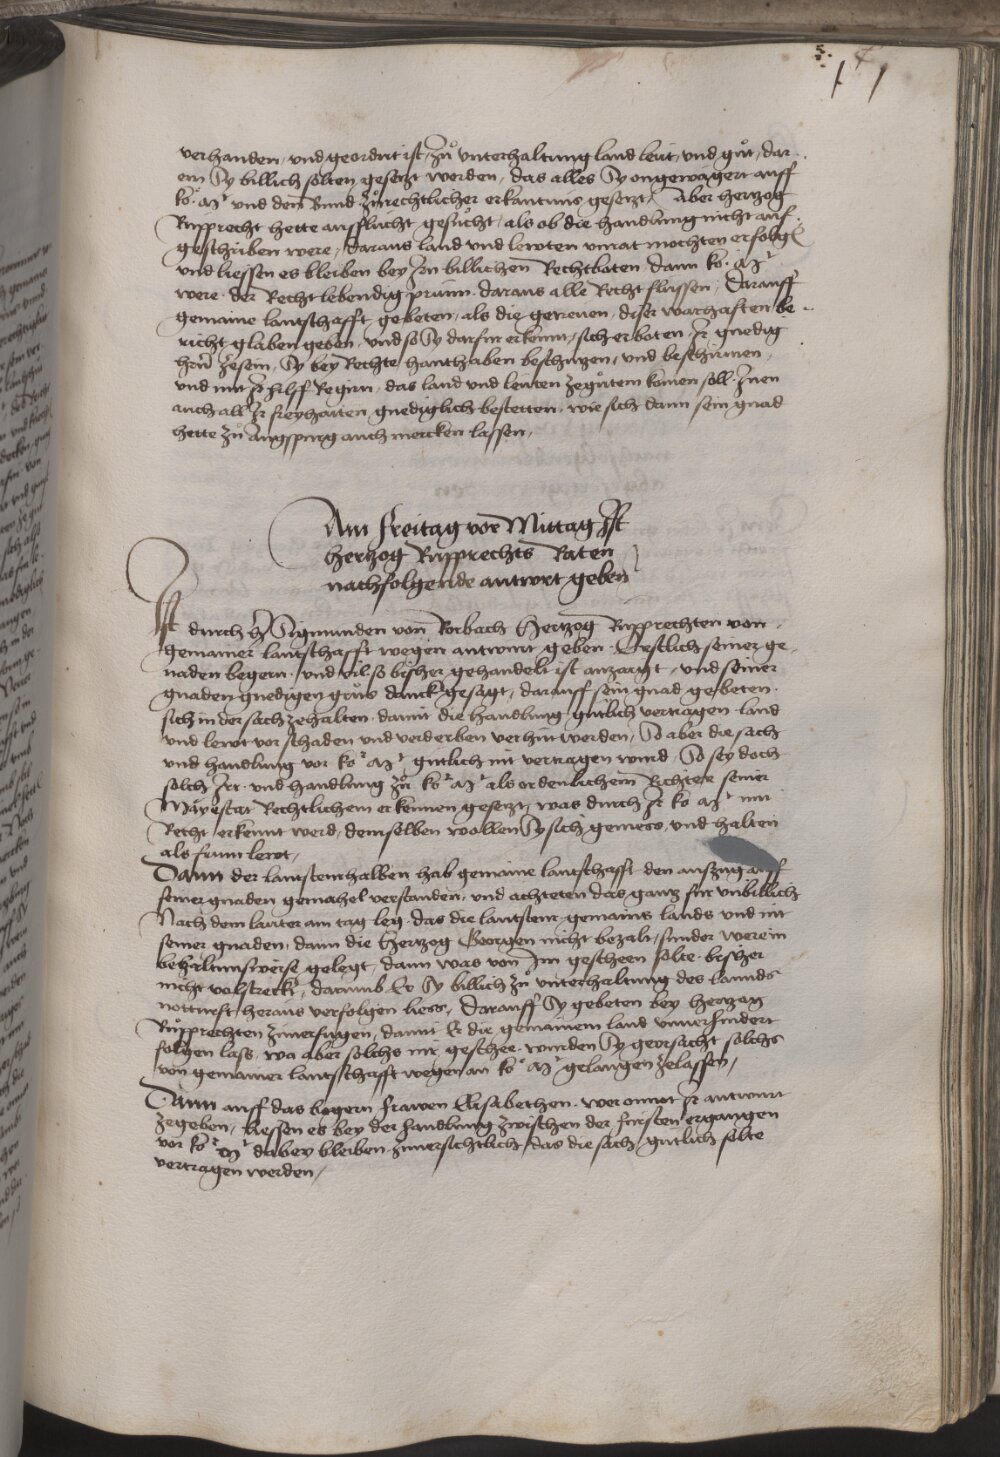 verhanden, vnd geordnt ist, zů vnterhaltung land leut, vnd gůt, dar-
ein Sy billich solten gesetzt werden, das alles Sy ongewägert auff
ko. Mt vnd den Bund zůrechtlicher erkantnus gesetzt, Aber hertzog
Rupprecht hette aufflucht gesůcht, als ob die handlung nicht auf-
geschriben were, daraus land vnd lewten vnrat mochten erfolgē
vnd liessen es bleiben bey Irn billichen Rechtboten, dann ko. Mt
were der Recht lebendig prunn, daraus alle Recht flussen, Darauff
gemaine lantschafft gebeten, als die getreuen, diser warhafften be-
richt glaben geben, vnd so Sy darfur erkennt, sich erboten, Ir gnedig
herñ zesein, Sy bey Rechte hanthaben beschirgen, vnd beschirmen,
vnd mit Ir hilff Regirn, das land vnd leuten zegůtem komen soll, Inen
auch all Ir freyhaiten gnediglich bestetten, wie sich dann sein gnad
hette zů Augspurg auch mercken lassen,
Am freitag vor Mittag Ist
hertzog Rupprechts Raten
nachfolgende antwrt geben
Ist durch hr Sigmunden von Rorbach Hertzog Rupprechten von
gemainer lantschafft wegen antwurt geben, Erstlich seiner ge-
naden begern, vnd vil so bisher gehandelt ist anzaigt, vnd seiner
gnaden gnedigen grůs danckh gesagt, darauff sein gnad gebeten
sich in der sach zehalten, damit die handlung gutlich vertragen land
vnd lewt vor schaden vnd verderben verhut werden, So aber die sach
vnd handlung vor ko. Mt gutlich nit vertragen wurd, So sey doch
solch Irr. vnd handlung zů ko. Mt als ordenlichem Richter seiner
Mayestat Rechtlichem erkennen gesetzt, was durch Ir ko Mt mit
Recht erkennt werd, demselben wollen Sy sich gemess, vnd halten
als frum lewt,
Dann der lantstewrhalben hab gemaine lantschafft den auszug auff
seiner gnaden gemahel verstanden, vnd achteten das gantz fur vnbillich
Nach dem lauter am tag leg, das die lantstewr gemains lands vnd nit
seiner gnaden, dann die Hertzog Georgen nicht bezalt, sunder were in
behaltnuswerse gelegt, dann was von Im gescheen solte bisher
nicht volstreckt, darumb Er Sy billich zů vnterhaltung des lannds
notturft, heraus verfolgen liess, Darauff Sy gebeten bey hertzog
Rupprechten zuuerfugen, damit Er die gemainem land vnuerhindert
folgen lass, wa aber solchs nit geschee, wurden Sy georsacht solchs
von gemainer lantschafft wegen an ko. Mt gelangen zelassen,
Dann auff das begern frawen Elisabethen, weronner Ir antwurt
zegeben, liessen es bey der handlung zwischen der fursten ergangen
vor ko. Mt dabey bleiben zuuersichtlich, das die sach gutlich solte
vertragen werden,